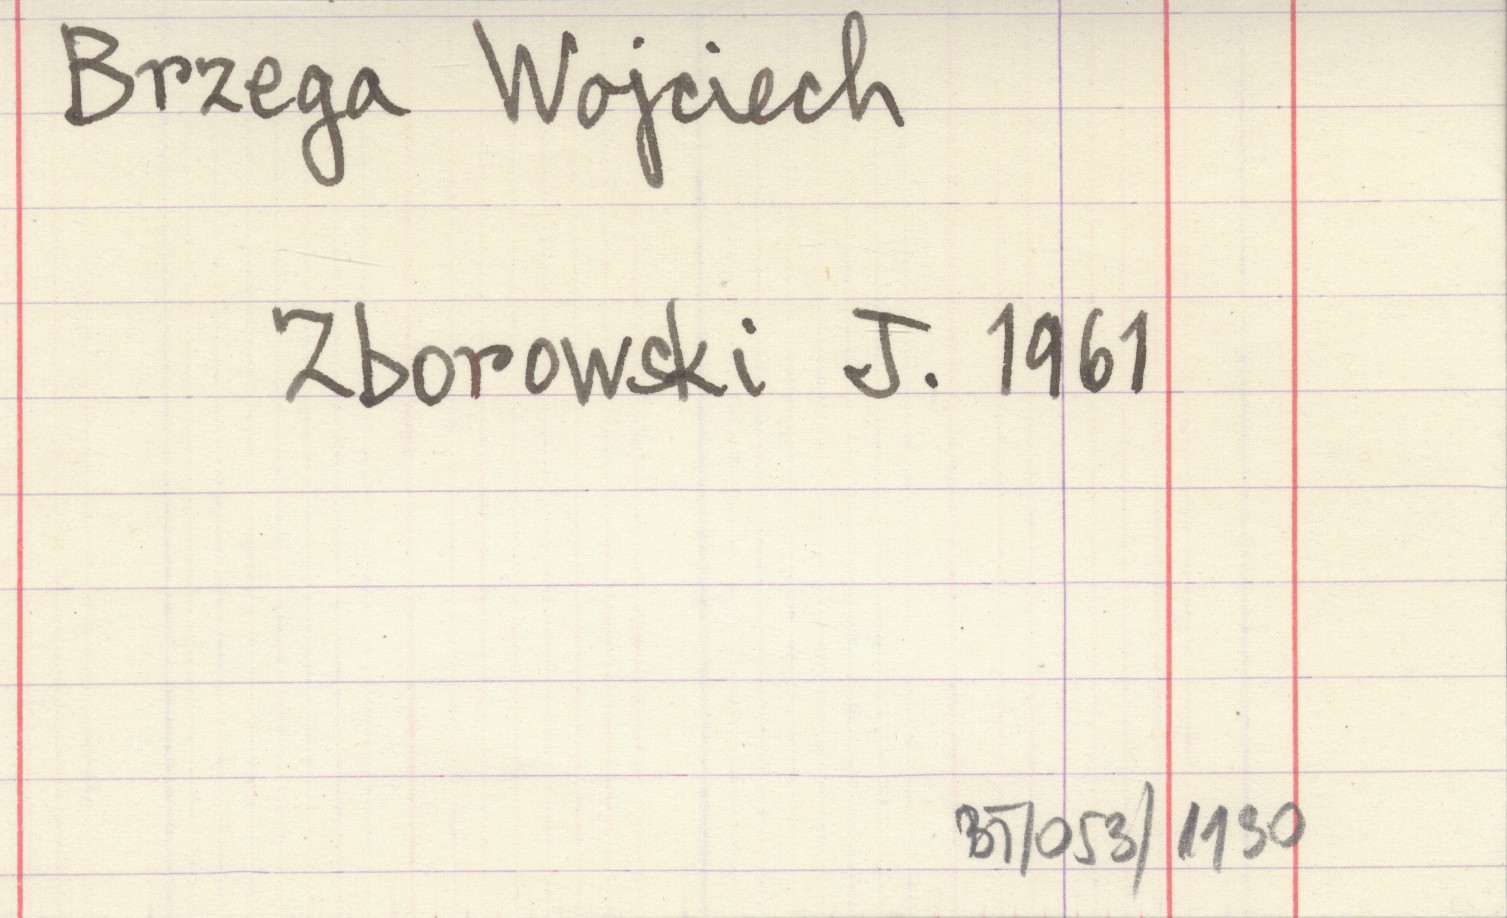 Brzega Wojciech
Zborowski J. 1961
BT/053/1130